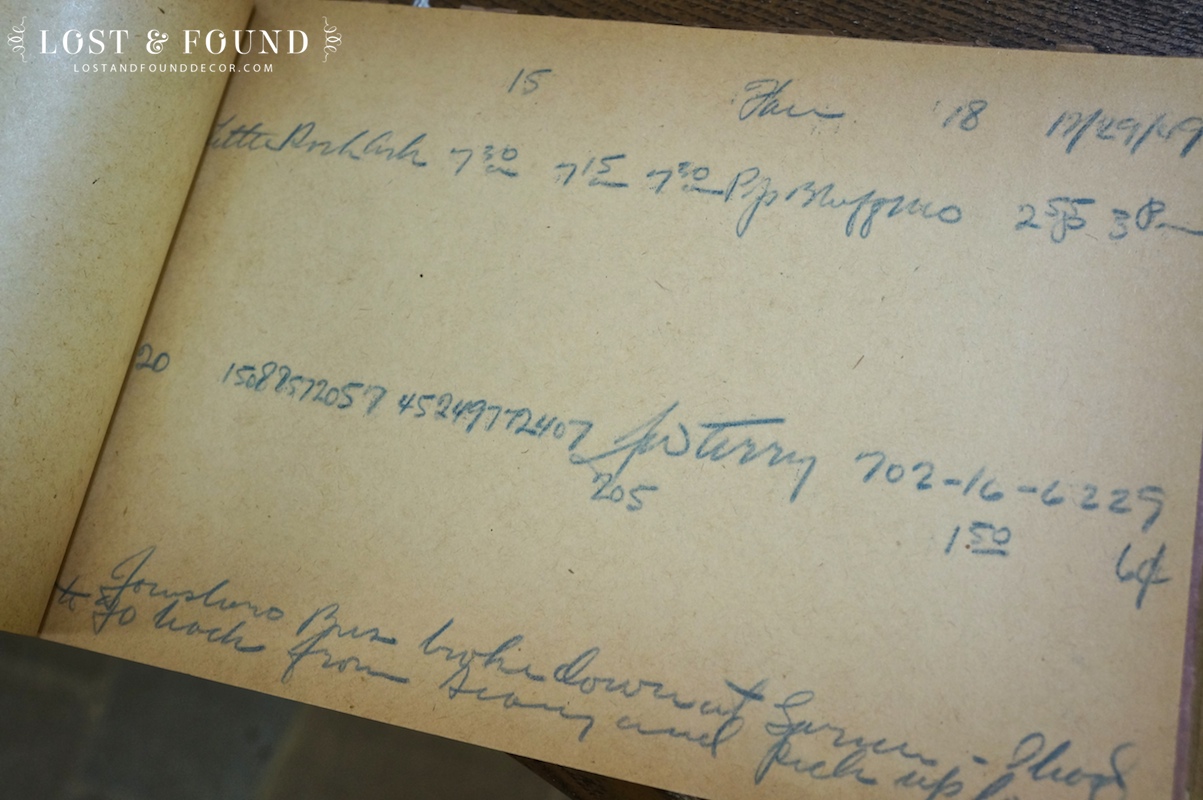 LOST & FOUND
LOSTANDFOUNDDECOR.COM
15 18 12/29/49
Little Rock Ark 7 30 7 15 7 30 Pop Bluff Mo 2 55 3 Pm
20 15088572057 45249772407 JW Terry 702-16-6229
205 1 50 6¢
Jonesboro Bus broke down at - I had
to go back from and pick up